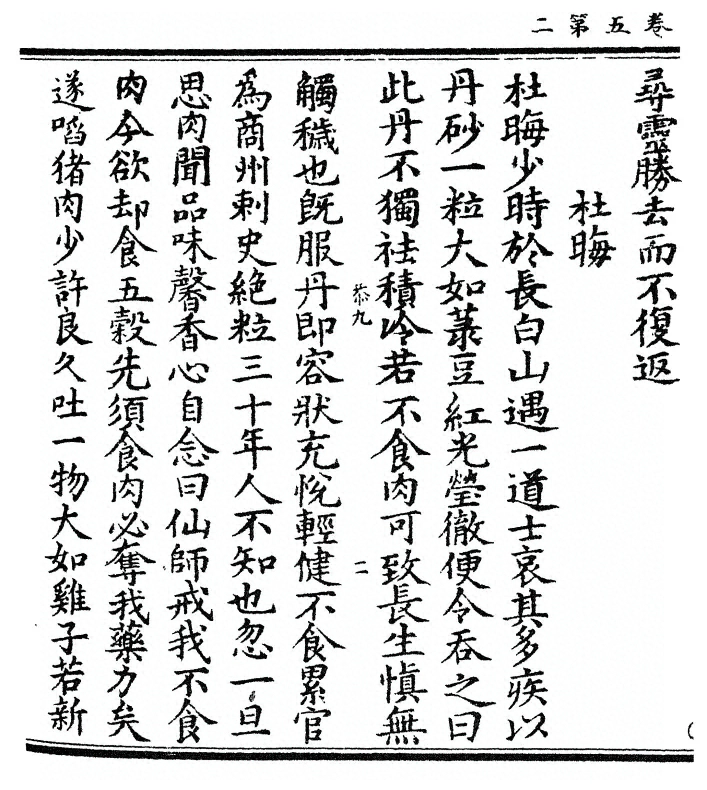 卷五第二
尋靈勝去而不復返
杜晦
杜晦少時於長白山遇一道士哀其多疾以
丹砂一粒大如菉豆紅光瑩徹便令吞之曰
此丹不獨祛積冷若不食肉可致長生慎無
恭九
二
觸穢也既服丹即容狀充悅輕健不食累官
為商州刺史絶粒三十年人不知也忽一旦
思肉聞品味馨香心自念曰仙師戒我不食
肉今欲却食五穀先須食肉必奪我藥力矣
遂啗猪肉少許良久吐一物大如雞子若新